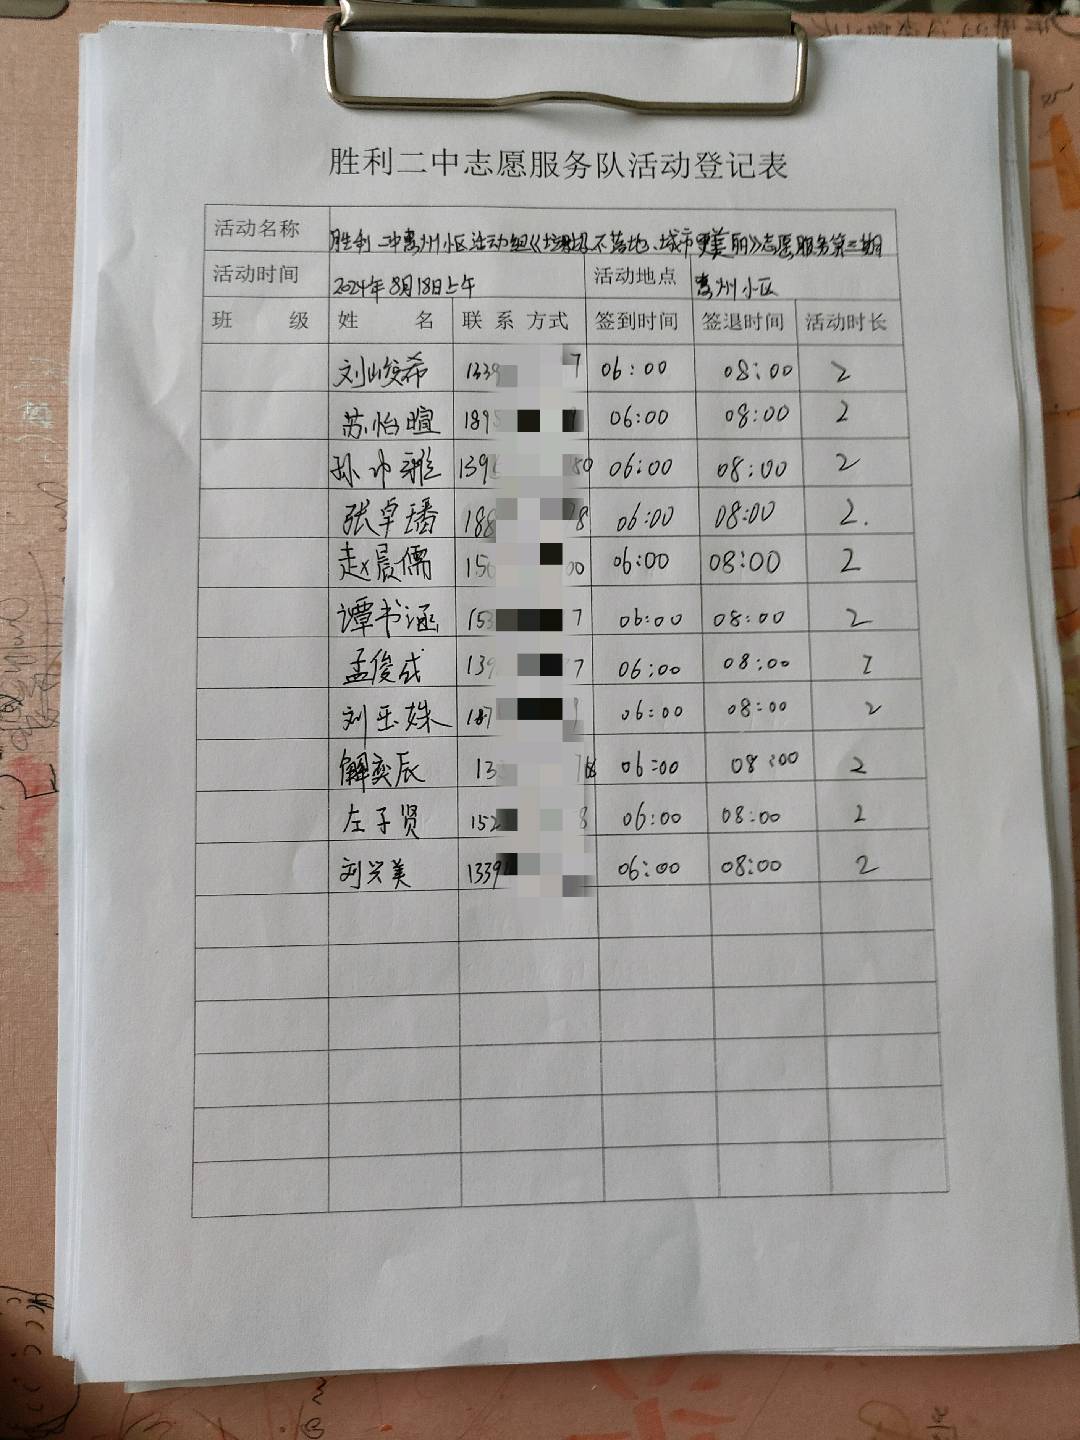 胜利二中志愿服务队活动登记表
活动名称 胜利二中惠州小区活动组《垃圾不落地、城市更美丽》志愿服务第三期
活动时间 2024年8月18日上午 活动地点 惠州小区
班 级 姓 名 联系方式 签到时间 签退时间 活动时长
刘峻希 1339 7 06:00 08:00 2
苏怡暄 189 06:00 08:00 2
孙 雅 139 50 06:00 08:00 2
张卓璠 188 8 06:00 08:00 2.
赵晨儒 150 00 06:00 08:00 2
谭书涵 153 7 06:00 08:00 2
孟俊成 139 7 06:00 08:00 2
刘玉姝 187 06:00 08:00 2
解奕辰 13 06:00 08:00 2
左子贤 152 8 06:00 08:00 2
刘兴美 1339 06:00 08:00 2